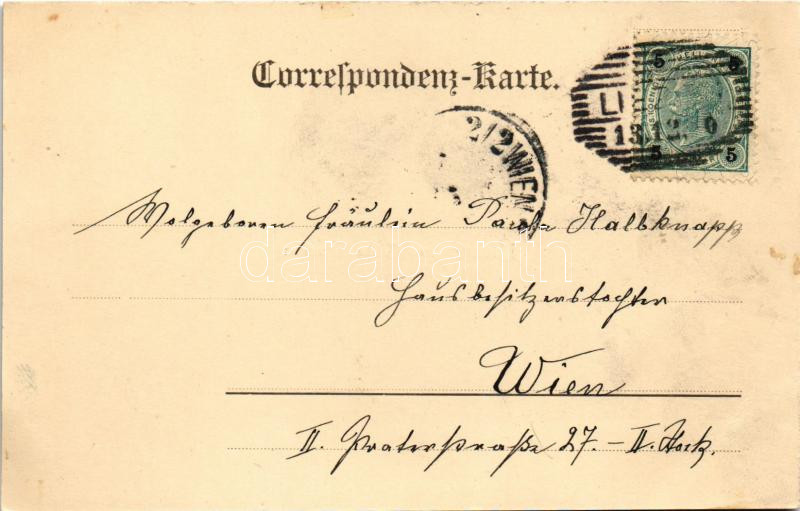 Correspondenz-Karte.
5 5
LI
13 12 0
5 5
2/2 WIEN
Wolgeboren Fräulein Halbknapp
darabanth
Hausbesitzerstochter
Wien
II. Praterstraße 27. – II. Stock.